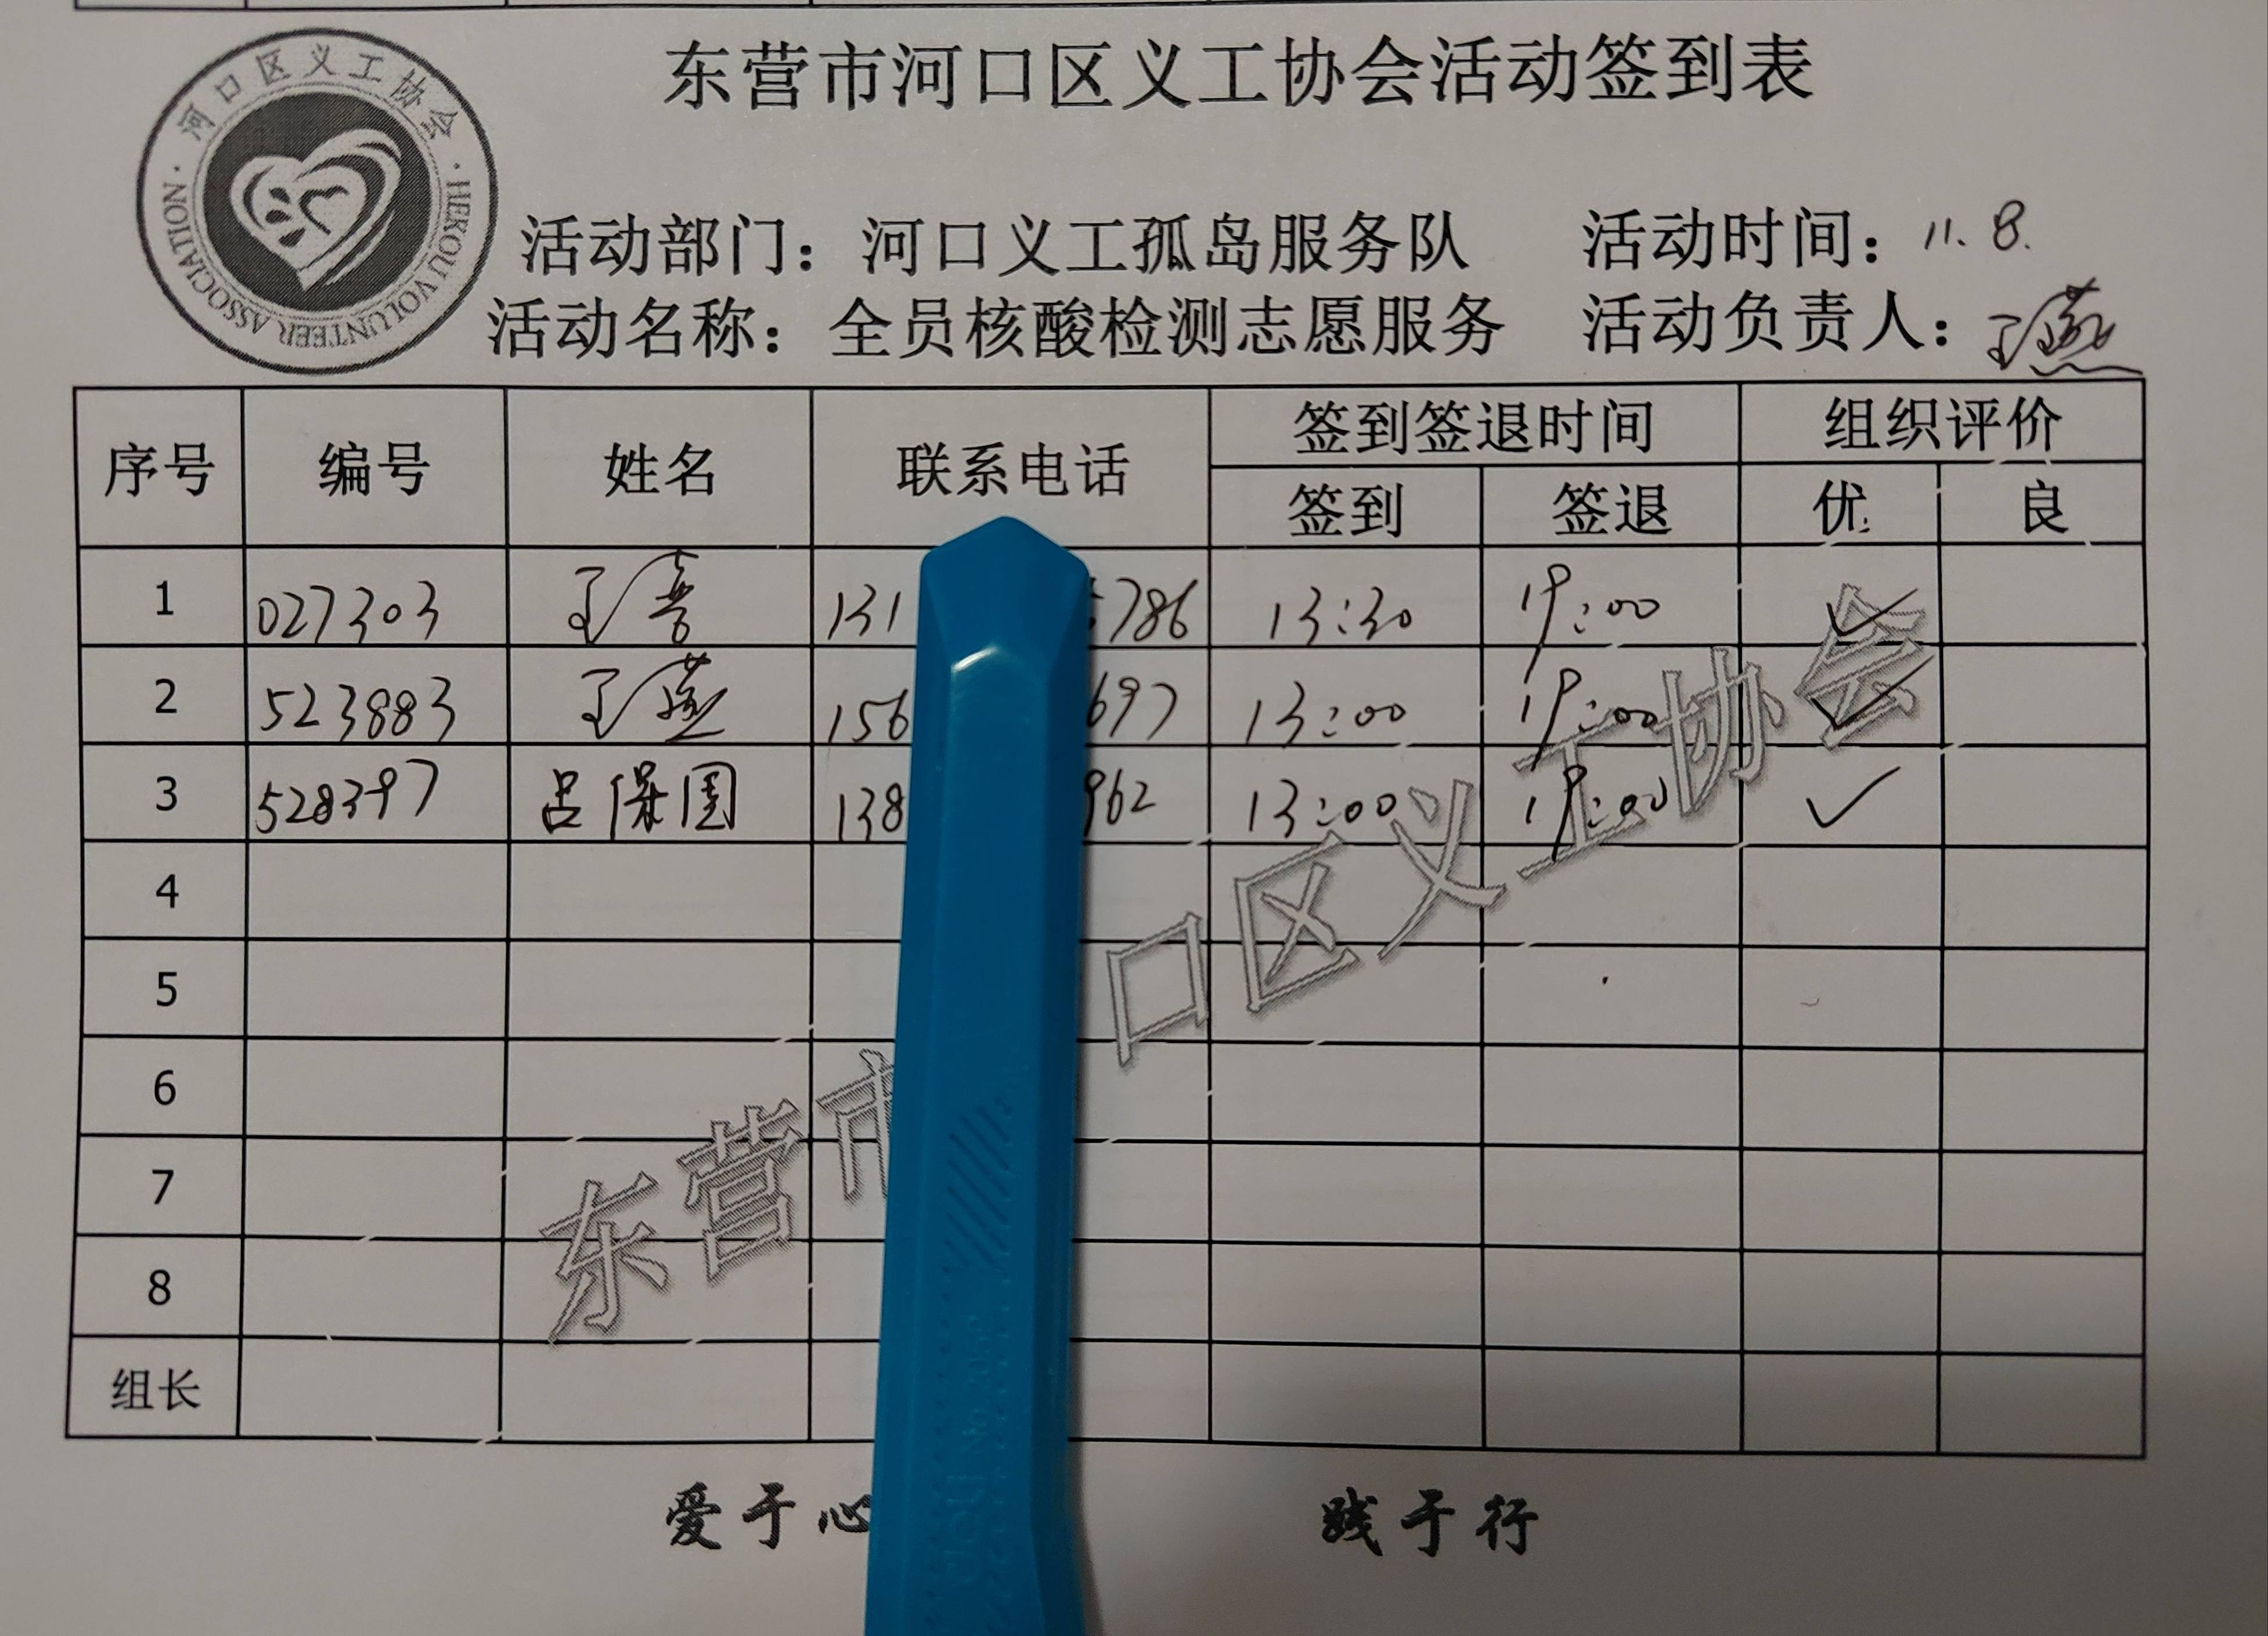 东营市河口区义工协会活动签到表
河口区义工协会
HEKOU VOLUNTEER ASSOCIATION
活动部门：河口义工孤岛服务队 活动时间：11.8.
活动名称：全员核酸检测志愿服务 活动负责人：王燕
序号 编号 姓名 联系电话 签到签退时间 组织评价
签到 签退 优 良
1 027303 王 131 786 13:30 19:00 ✓
2 523883 王燕 156 697 13:00 19:00 ✓
3 528397 吕保国 138 962 13:00 19:00 ✓
4
5
6
7
8
组长
东营市 口区义工协会
爱于心 践于行
deli No.2058